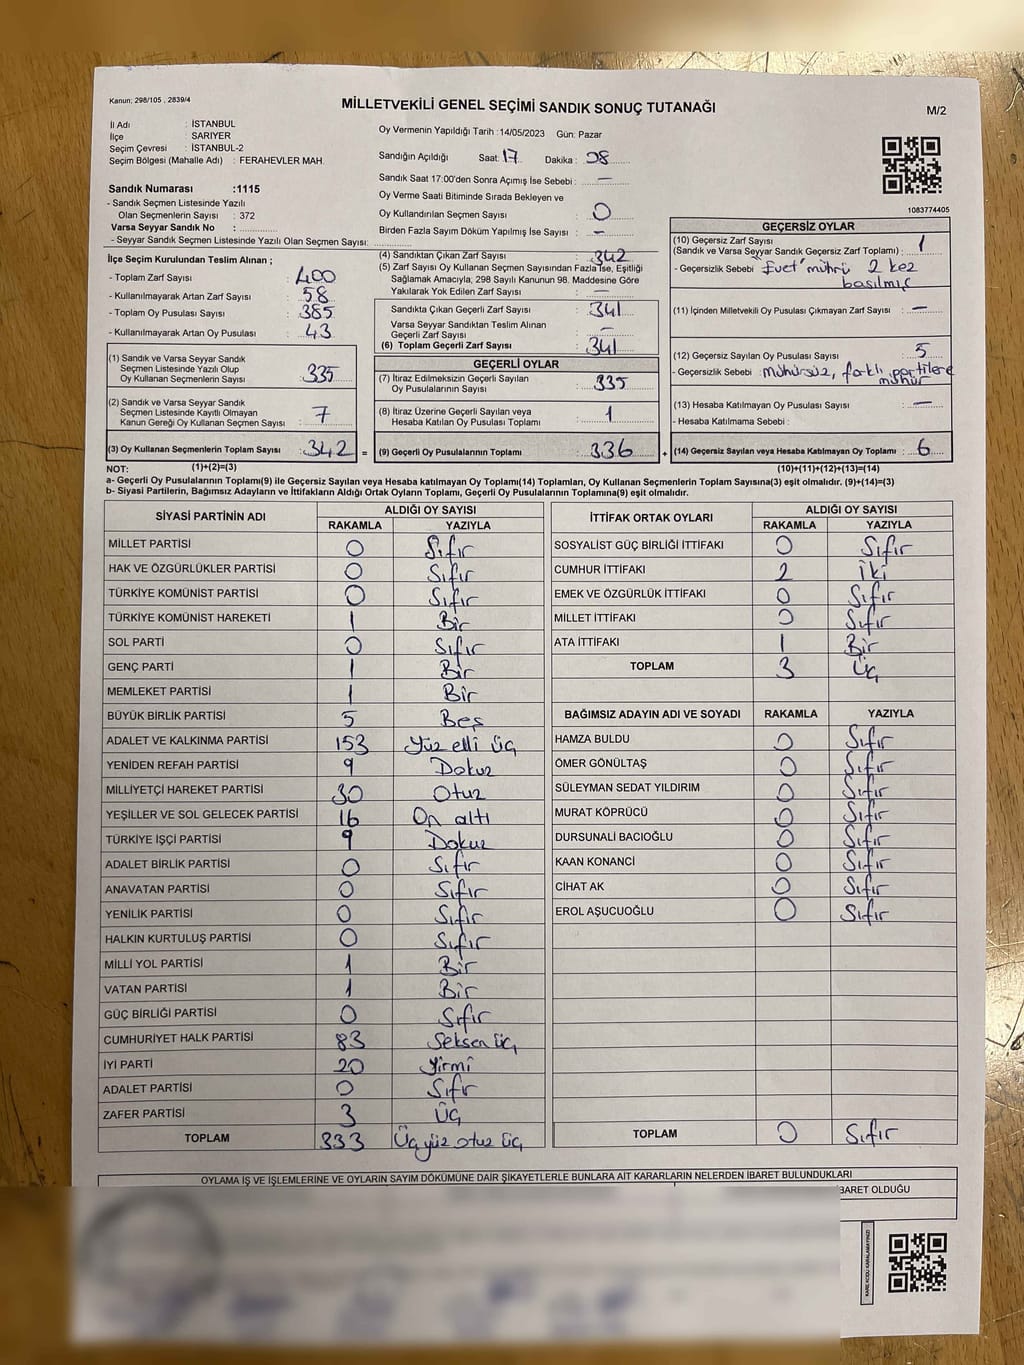 Kanun: 298/105 , 2839/4
MİLLETVEKİLİ GENEL SEÇİMİ SANDIK SONUÇ TUTANAĞI
M/2
İl Adı : İSTANBUL
İlçe : SARIYER
Seçim Çevresi : İSTANBUL-2
Seçim Bölgesi (Mahalle Adı) : FERAHEVLER MAH.
Sandık Numarası :1115
- Sandık Seçmen Listesinde Yazılı
Olan Seçmenlerin Sayısı : 372
Varsa Seyyar Sandık No :
- Seyyar Sandık Seçmen Listesinde Yazılı Olan Seçmen Sayısı:
Oy Vermenin Yapıldığı Tarih :14/05/2023 Gün: Pazar
Sandığın Açıldığı Saat: 17 Dakika : 08
Sandık Saat 17:00'den Sonra Açımış İse Sebebi : —
Oy Verme Saati Bitiminde Sırada Bekleyen ve
Oy Kullandırılan Seçmen Sayısı : 0
Birden Fazla Sayım Döküm Yapılmış İse Sayısı : —
1083774405
İlçe Seçim Kurulundan Teslim Alınan ;
- Toplam Zarf Sayısı : 400
- Kullanılmayarak Artan Zarf Sayısı : 58
- Toplam Oy Pusulası Sayısı : 385
- Kullanılmayarak Artan Oy Pusulası : 43
(1) Sandık ve Varsa Seyyar Sandık
Seçmen Listesinde Yazılı Olup
Oy Kullanan Seçmenlerin Sayısı : 335
(2) Sandık ve Varsa Seyyar Sandık
Seçmen Listesinde Kayıtlı Olmayan
Kanun Gereği Oy Kullanan Seçmen Sayısı : 7
(3) Oy Kullanan Seçmenlerin Toplam Sayısı : 342 =
(4) Sandıktan Çıkan Zarf Sayısı : 342
(5) Zarf Sayısı Oy Kullanan Seçmen Sayısından Fazla İse, Eşitliği
Sağlamak Amacıyla; 298 Sayılı Kanunun 98. Maddesine Göre
Yakılarak Yok Edilen Zarf Sayısı : —
Sandıkta Çıkan Geçerli Zarf Sayısı : 341
Varsa Seyyar Sandıktan Teslim Alınan
Geçerli Zarf Sayısı : —
(6) Toplam Geçerli Zarf Sayısı : 341
GEÇERLİ OYLAR
(7) İtiraz Edilmeksizin Geçerli Sayılan
Oy Pusulalarının Sayısı : 335
(8) İtiraz Üzerine Geçerli Sayılan veya
Hesaba Katılan Oy Pusulası Toplamı : 1
(9) Geçerli Oy Pusulalarının Toplamı : 336 +
GEÇERSİZ OYLAR
(10) Geçersiz Zarf Sayısı
(Sandık ve Varsa Seyyar Sandık Geçersiz Zarf Toplamı) : 1
- Geçersizlik Sebebi : Evet' mührü 2 kez
basılmış
(11) İçinden Milletvekili Oy Pusulası Çıkmayan Zarf Sayısı : —
(12) Geçersiz Sayılan Oy Pusulası Sayısı : 5
- Geçersizlik Sebebi : mühürsüz, farklı partilere
mühür
(13) Hesaba Katılmayan Oy Pusulası Sayısı : —
- Hesaba Katılmama Sebebi :
(14) Geçersiz Sayılan veya Hesaba Katılmayan Oy Toplamı : 6
NOT: (1)+(2)=(3) (10)+(11)+(12)+(13)=(14)
a- Geçerli Oy Pusulasının Toplamı(9) ile Geçersiz Sayılan veya Hesaba katılmayan Oy Toplamı(14) Toplamları, Oy Kullanan Seçmenlerin Toplam Sayısına(3) eşit olmalıdır. (9)+(14)=(3)
b- Siyasi Partilerin, Bağımsız Adayların ve İttifakların Aldığı Ortak Oyların Toplamı, Geçerli Oy Pusulalarının Toplamına(9) eşit olmalıdır.
SİYASİ PARTİNİN ADI ALDIĞI OY SAYISI
RAKAMLA YAZIYLA
MİLLET PARTİSİ 0 Sıfır
HAK VE ÖZGÜRLÜKLER PARTİSİ 0 Sıfır
TÜRKİYE KOMÜNİST PARTİSİ 0 Sıfır
TÜRKİYE KOMÜNİST HAREKETİ 1 Bir
SOL PARTİ 0 Sıfır
GENÇ PARTİ 1 Bir
MEMLEKET PARTİSİ 1 Bir
BÜYÜK BİRLİK PARTİSİ 5 Beş
ADALET VE KALKINMA PARTİSİ 153 Yüz elli üç
YENİDEN REFAH PARTİSİ 9 Dokuz
MİLLİYETÇİ HAREKET PARTİSİ 30 Otuz
YEŞİLLER VE SOL GELECEK PARTİSİ 16 On altı
TÜRKİYE İŞÇİ PARTİSİ 9 Dokuz
ADALET BİRLİK PARTİSİ 0 Sıfır
ANAVATAN PARTİSİ 0 Sıfır
YENİLİK PARTİSİ 0 Sıfır
HALKIN KURTULUŞ PARTİSİ 0 Sıfır
MİLLİ YOL PARTİSİ 1 Bir
VATAN PARTİSİ 1 Bir
GÜÇ BİRLİĞİ PARTİSİ 0 Sıfır
CUMHURİYET HALK PARTİSİ 83 Seksen üç
İYİ PARTİ 20 Yirmi
ADALET PARTİSİ 0 Sıfır
ZAFER PARTİSİ 3 Üç
TOPLAM 333 Üç yüz otuz üç
İTTİFAK ORTAK OYLARI ALDIĞI OY SAYISI
RAKAMLA YAZIYLA
SOSYALİST GÜÇ BİRLİĞİ İTTİFAKI 0 Sıfır
CUMHUR İTTİFAKI 2 İki
EMEK VE ÖZGÜRLÜK İTTİFAKI 0 Sıfır
MİLLET İTTİFAKI 0 Sıfır
ATA İTTİFAKI 1 Bir
TOPLAM 3 Üç
BAĞIMSIZ ADAYIN ADI VE SOYADI RAKAMLA YAZIYLA
HAMZA BULDU 0 Sıfır
ÖMER GÖNÜLTAŞ 0 Sıfır
SÜLEYMAN SEDAT YILDIRIM 0 Sıfır
MURAT KÖPRÜCÜ 0 Sıfır
DURSUNALİ BACIOĞLU 0 Sıfır
KAAN KONANCİ 0 Sıfır
CİHAT AK 0 Sıfır
EROL AŞUCUOĞLU 0 Sıfır
TOPLAM 0 Sıfır
OYLAMA İŞ VE İŞLEMLERİNE VE OYLARIN SAYIM DÖKÜMÜNE DAİR ŞİKAYETLERLE BUNLARA AİT KARARLARIN NELERDEN İBARET BULUNDUKLARI
BARET OLDUĞU
KARE KODU KARALAMAYINIZ!